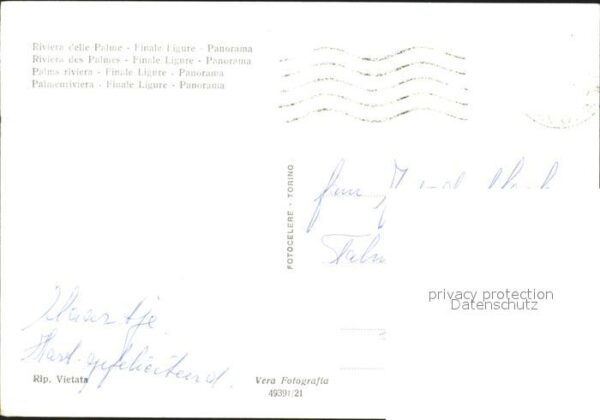 Riviera delle Palme - Finale Ligure - Panorama
Riviera des Palmes - Finale Ligure - Panorama
Palms riviera - Finale Ligure - Panorama
Palmenriviera - Finale Ligure - Panorama
FOTOCELERE - TORINO
fam
privacy protection
Datenschutz
Klaartje
Hart. gefeliciteerd.
Rip. Vietata
Vera Fotografia
49391/21